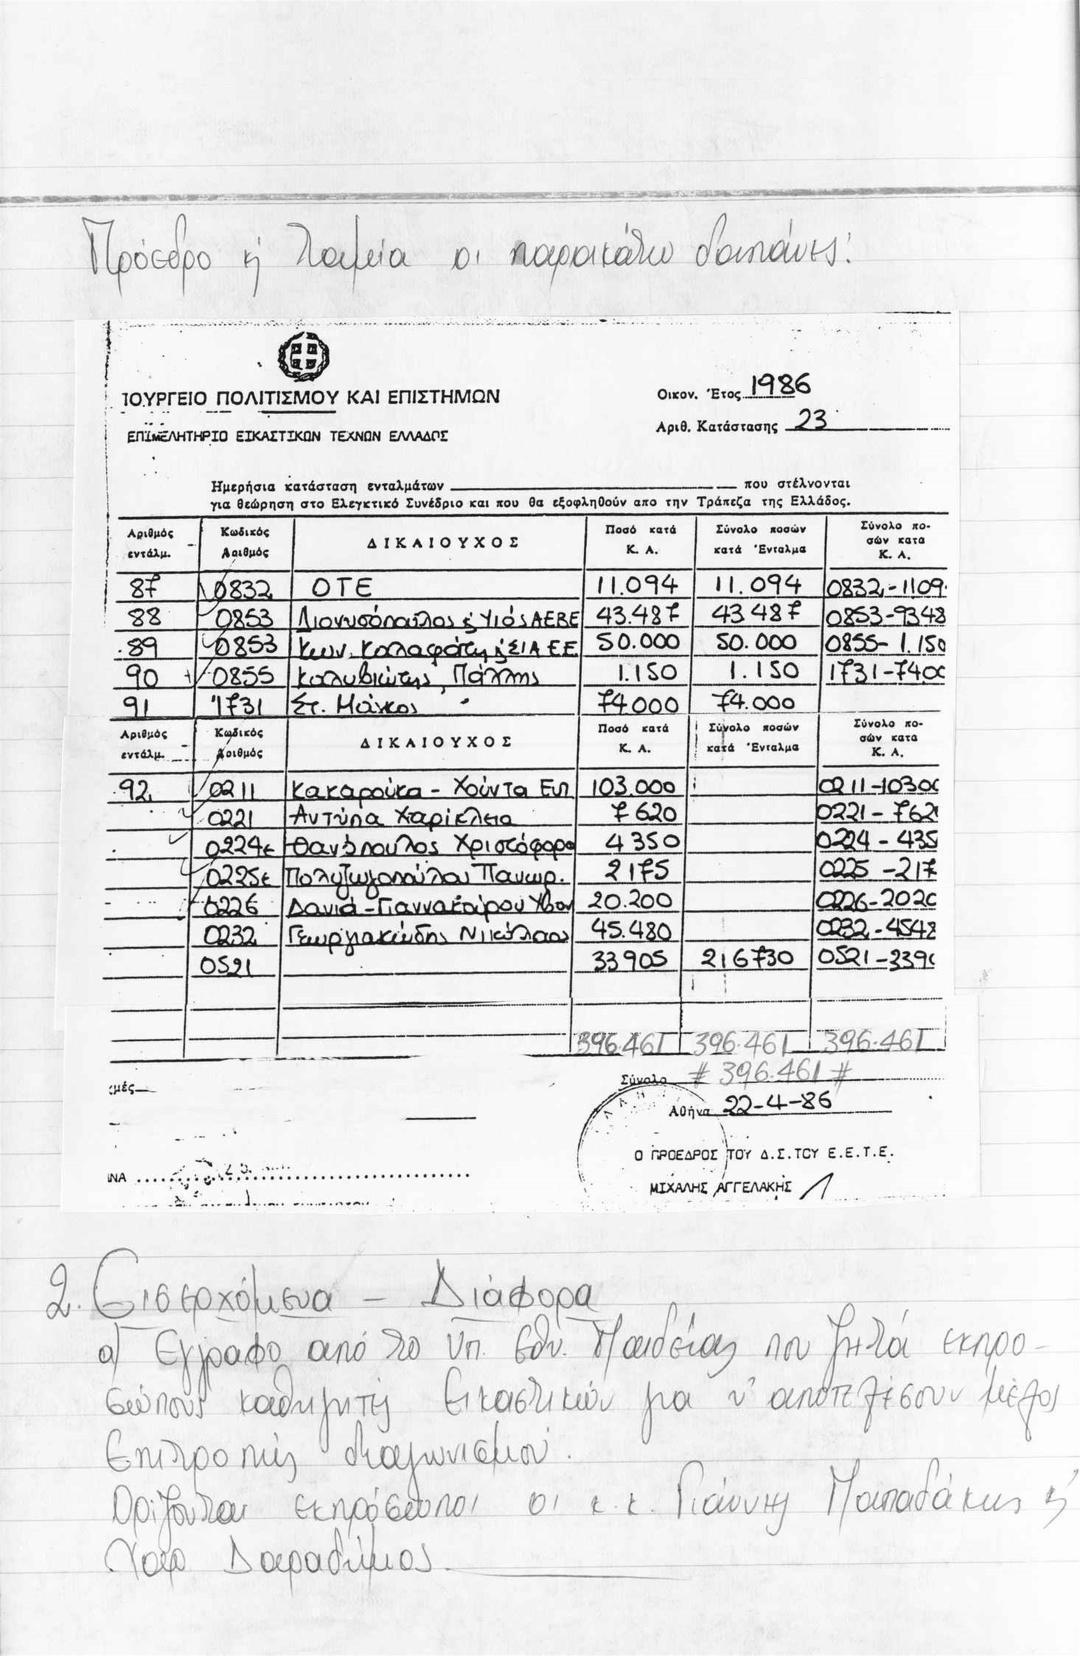 Πρόεδρο ή Ταμεία οι παρακάτω δαπάνες:
ΙΟΥΡΓΕΙΟ ΠΟΛΙΤΙΣΜΟΥ ΚΑΙ ΕΠΙΣΤΗΜΩΝ
Οικον. Έτος 1986
ΕΠΙΜΕΛΗΤΗΡΙΟ ΕΙΚΑΣΤΙΚΩΝ ΤΕΧΝΩΝ ΕΛΛΑΔΟΣ
Αριθ. Κατάστασης 23
Ημερήσια κατάσταση ενταλμάτων που στέλνονται
για θεώρηση στο Ελεγκτικό Συνέδριο και που θα εξοφληθούν απο την Τράπεζα της Ελλάδος.
Αριθμός εντάλμ. Κωδικός Αριθμός ΔΙΚΑΙΟΥΧΟΣ Ποσό κατά Κ. Α. Σύνολο ποσών κατά Ένταλμα Σύνολο ποσών κατα Κ. Α.
87 0832 ΟΤΕ 11.094 11.094 0832-1109
88 0853 Διονυσόπουλος & Υιός ΑΕΒΕ 43.487 43487 0853-9348
89 0853 Κων. Καλαφάτης & ΣΙΑ ΕΕ 50.000 50.000 0855-1.150
90 0855 Καλυβιώτης Πάλλης 1.150 1.150 1731-7400
91 1731 Στ. Μάνος 74000 74.000
Αριθμός εντάλμ. Κωδικός Αριθμός ΔΙΚΑΙΟΥΧΟΣ Ποσό κατά Κ. Α. Σύνολο ποσών κατά Ένταλμα Σύνολο ποσών κατα Κ. Α.
92 0211 Κακαρούκα - Χούντα Ευ 103.000 0211-10300
0221 Αντύπα Χαρίκλεια 7620 0221-762
0224 Θανόπουλος Χριστόφορο 4350 0224-435
0225 Πολυζωγοπούλου Παναγ. 2175 0225-217
0226 Δανιά-Γιαννακάρου Υβον 20.200 0226-2020
0232 Γεωργακώδης Νικόλαος 45.480 0232-4548
0521 33905 216730 0521-3390
396.461 396.461 396.461
μές
Σύνολο # 396.461 #
Αθήνα 22-4-86
Ο ΠΡΟΕΔΡΟΣ ΤΟΥ Δ.Σ.ΤΟΥ Ε.Ε.Τ.Ε.
ΙΝΑ
ΜΙΧΑΛΗΣ ΑΓΓΕΛΑΚΗΣ
2. Εισερχόμενα - Διάφορα
α) Έγγραφο από το Υπ. Εθν. Παιδείας που ζητά εκπρο-
σώπους καθηγητές Εικαστικών για ν' αποτελέσουν μέλος
Επιτροπής διαγωνισμού.
Ορίζονται εκπρόσωποι οι κ.κ. Γιάννης Παπαδάκης ή
Δαραδήμος.